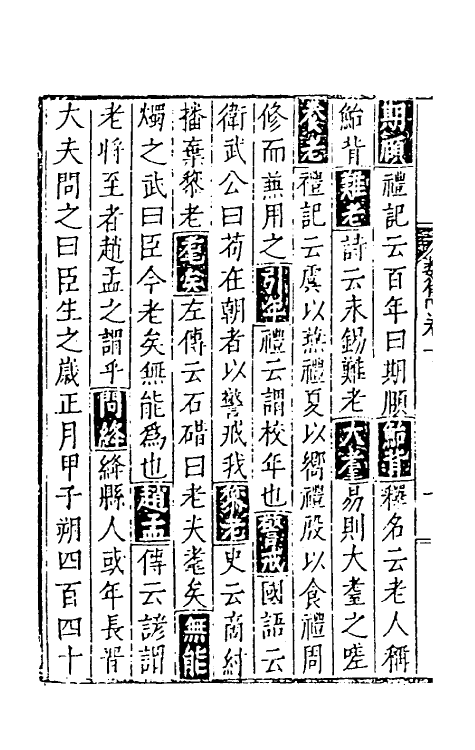 期頤禮記云百年曰期頤鮐背釋名云老人稱
鮐背難老詩云永錫難老大耋易則大耋之嗟
養老禮記云虞以燕禮夏以饗禮殷以食禮周
修而兼用之引年禮云謂校年也警戒國語云
衛武公曰苟在朝者以警戒我黎老史云商紂
播棄黎老耄矣左傳云石碏曰老夫耄矣無能
燭之武曰臣今老矣無能為也趙孟傳云諺謂
老將至者趙孟之謂乎問絳絳縣人或年長
大夫問之曰臣生之歲正月甲子朔四百四十